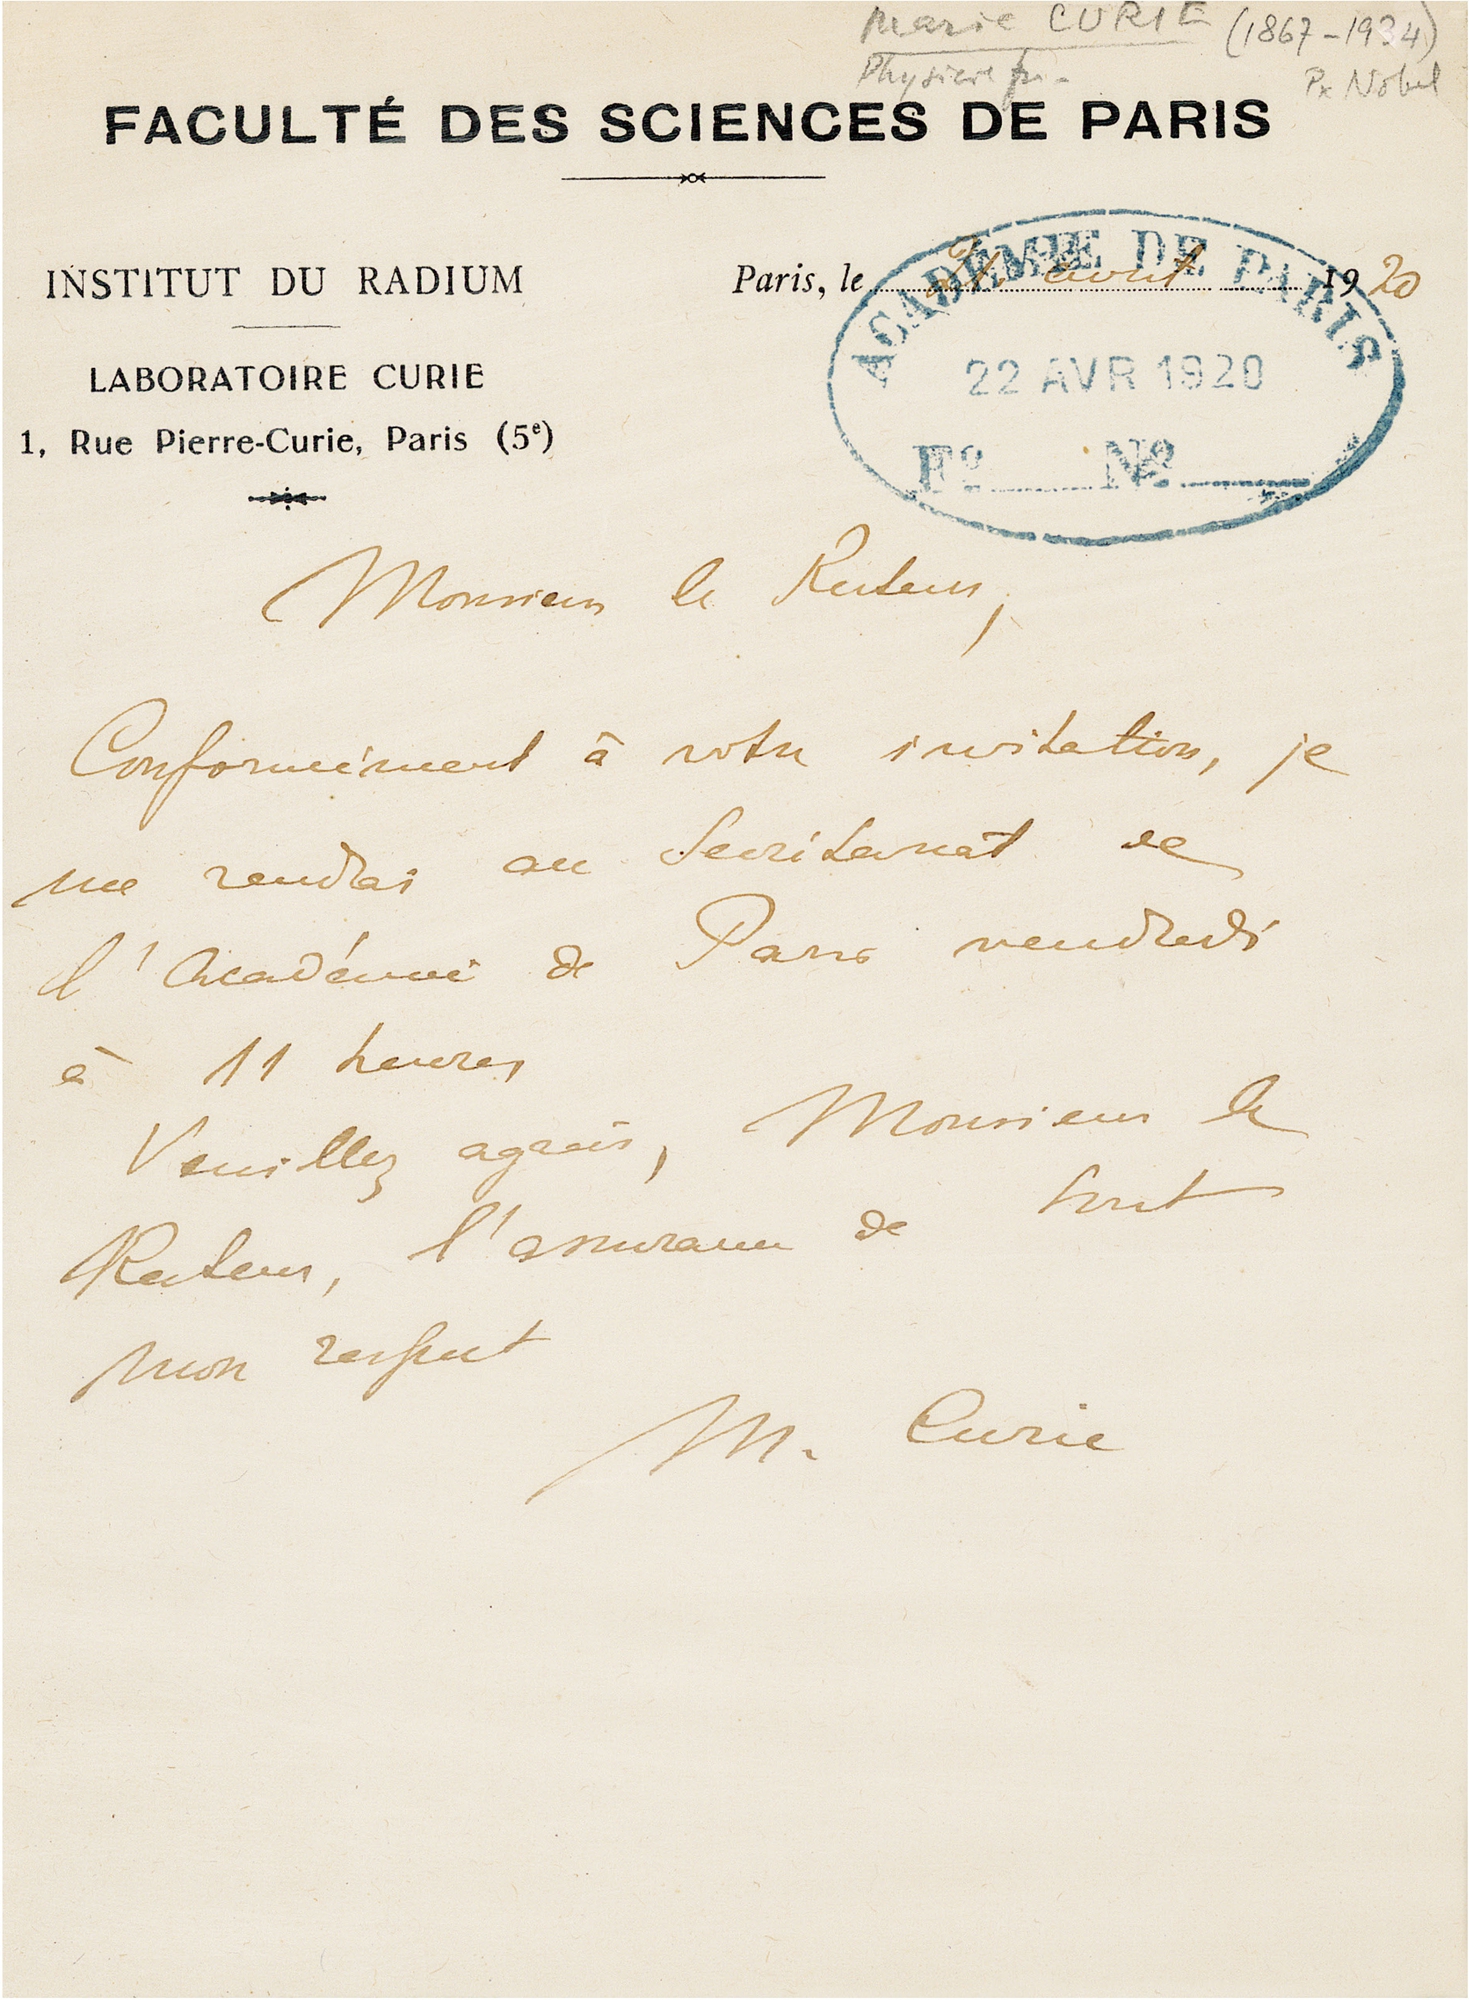 Marie CURIE (1867-1934)
Px Nobel
FACULTÉ DES SCIENCES DE PARIS
INSTITUT DU RADIUM
LABORATOIRE CURIE
1, Rue Pierre-Curie, Paris (5e)
Paris, le avril 1920
ACADÉMIE DE PARIS
22 AVR 1920
Fo Nº
Monsieur le Recteur,
Conformément à votre invitation, je
me rendrai au Secrétariat de
l'Académie de Paris vendredi
à 11 heures
Veuillez agréer, Monsieur le
Recteur, l'assurance de tout
mon respect
M. Curie